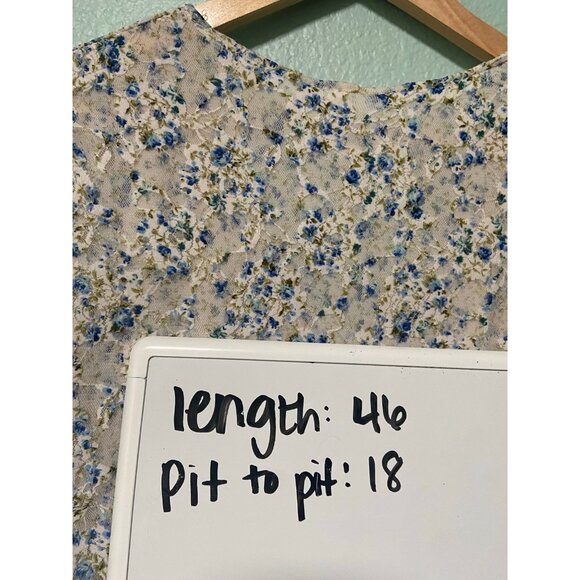 length: 46
Pit to pit: 18